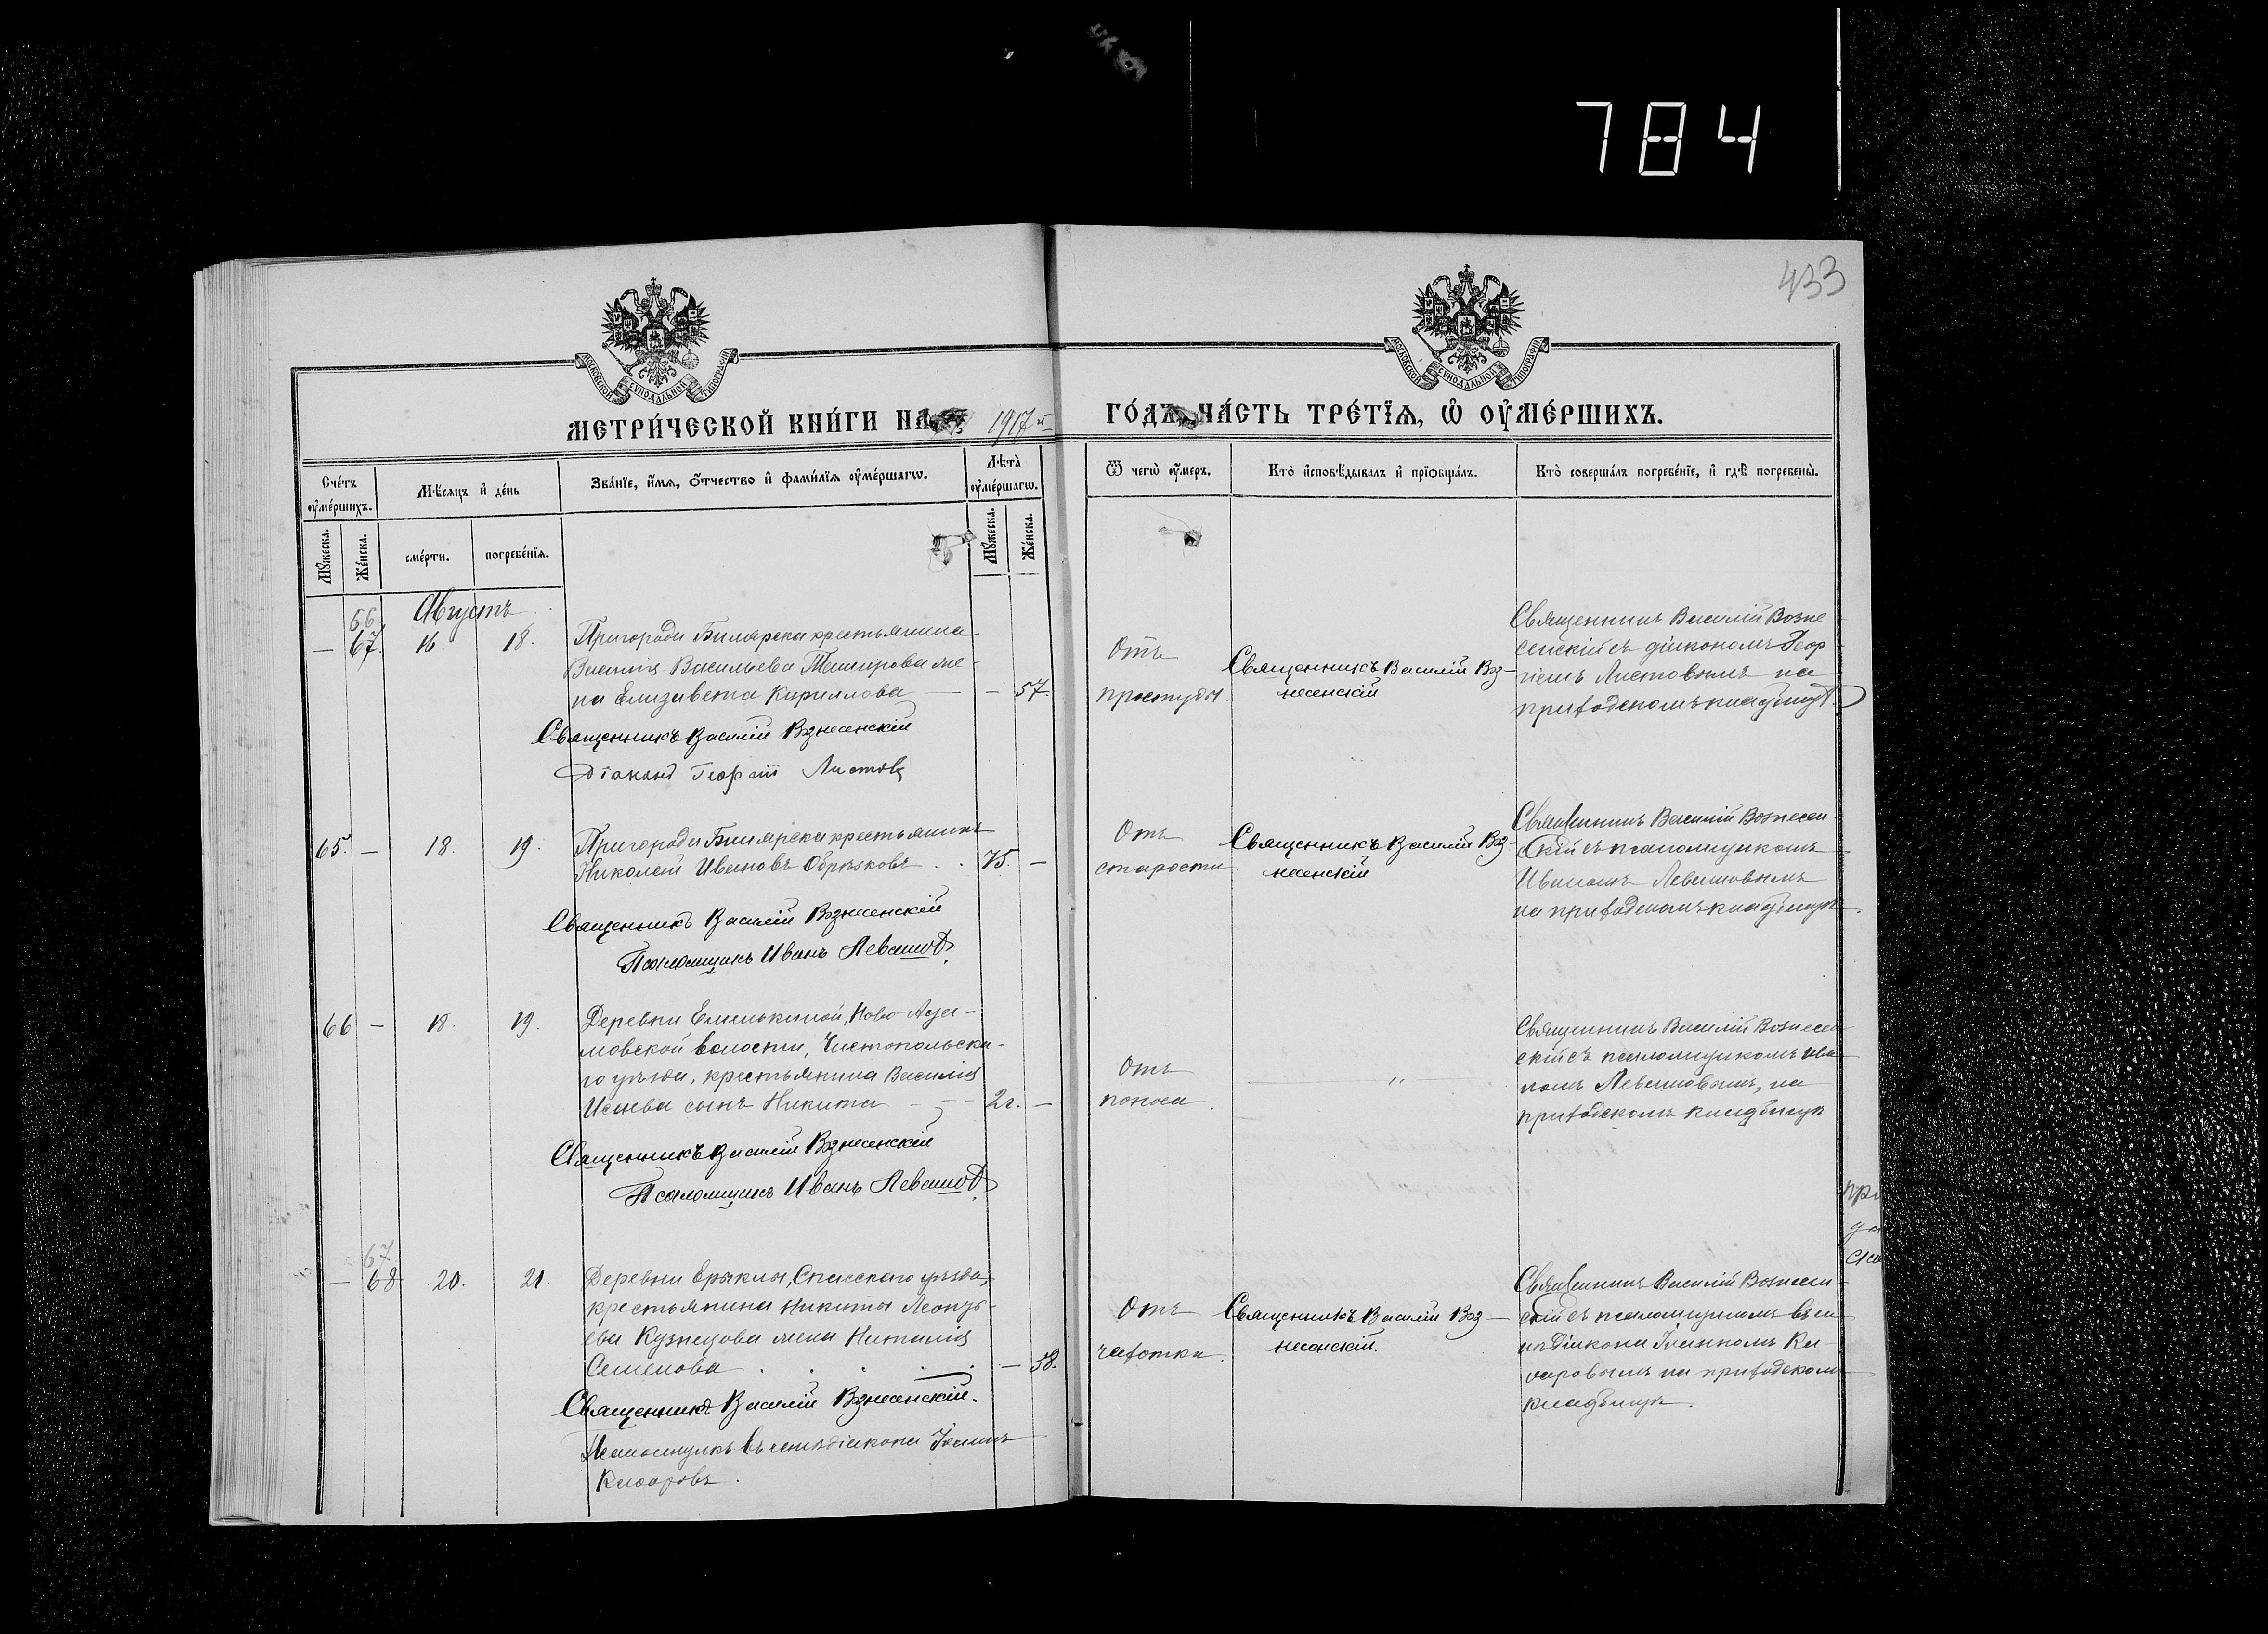 784
433
МОСКОВСКОЙ СѴНОДАЛЬНОЙ ТИПОГРАФІИ
МОСКОВСКОЙ СѴНОДАЛЬНОЙ ТИПОГРАФІИ
МЕТРИ́ЧЕСКОЙ КНИ́ГИ НА 1917й ГО́ДЪ ЧА́СТЬ ТРЕ́ТЇѦ, Ѡ҆ ОУ҆МЕ́РШИХЪ.
Сче́тъ оу҆ме́ршихъ.
Мѣ́сѧцъ и҆ де́нь
Зва́нїе, и҆́мѧ, ѻ҆́тчество и҆ фами́лїѧ оу҆ме́ршагѡ.
Лѣ́та оу҆ме́ршагѡ.
Ѿ чегѡ̀ оу҆́меръ.
Кто̀ и҆сповѣ́дывалъ и҆ прїѡбща́лъ.
Кто̀ соверша́лъ погребе́нїе, и҆ гдѣ̀ погребены̀.
Мꙋ́жеска.
Же́нска.
сме́рти.
погребе́нїѧ.
Мꙋ́жеска.
Же́нска.
Августъ
66
— 67. 16 18.
Пригорода Билярска крестьянина
Василія Васильева Таширова же-
на Елизавета Кириллова — — 57.
Священникъ Василій Вознесенскій
Діаконъ Георгій Листовъ
Отъ
простуды.
Священникъ Василій Воз-
несенскій
Священникъ Василій Возне
сенскій съ діакономъ Геор
гіемъ Листовымъ на
приходскомъ кладбищѣ
65. — 18. 19.
Пригорода Билярска крестьянинъ
Николай Ивановъ Обрѣзковъ . . 75. —
Священникъ Василій Вознесенскій
Псаломщикъ Иванъ Левашовъ.
Отъ
старости.
Священникъ Василій Воз-
несенскій
Священникъ Василій Вознесен-
скій съ псаломщикомъ
Иваномъ Левашовымъ
на приходскомъ кладбищѣ.
66 — 18. 19.
Деревни Емелькиной, Ново-Адa-
мовской волости, Чистопольска-
го уѣзда, крестьянина Василія
Исаева сынъ Никита — — 2г. —
Священникъ Василій Вознесенскій
Псаломщикъ Иванъ Левашовъ.
Отъ
поноса.
— „ —
Священникъ Василій Вознесен-
скій съ псаломщикомъ Ива-
номъ Левашовымъ, на
приходскомъ кладбищѣ
67
— 68 20. 21.
Деревни Ерыклы, Спасскаго уѣзда,
крестьянина Никиты Леонть-
ева Кузнецова жена Наталія
Семенова . . . . . — 58.
Священникъ Василій Вознесенскій.
Псаломщикъ въ санѣ діакона Іоаннъ
Отъ
чахотки.
Священникъ Василій Воз-
несенскій.
Священникъ Василій Вознесен-
скій съ псаломщикомъ въ са-
нѣ діакона Іоанномъ
на приходскомъ
кладбищѣ.